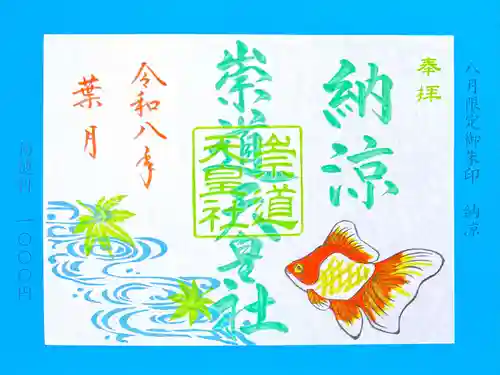 八月限定御朱印 納涼
奉拝
納涼
崇道天皇社
崇道
天皇社
令和八年
葉月
初穂料 一〇〇〇円